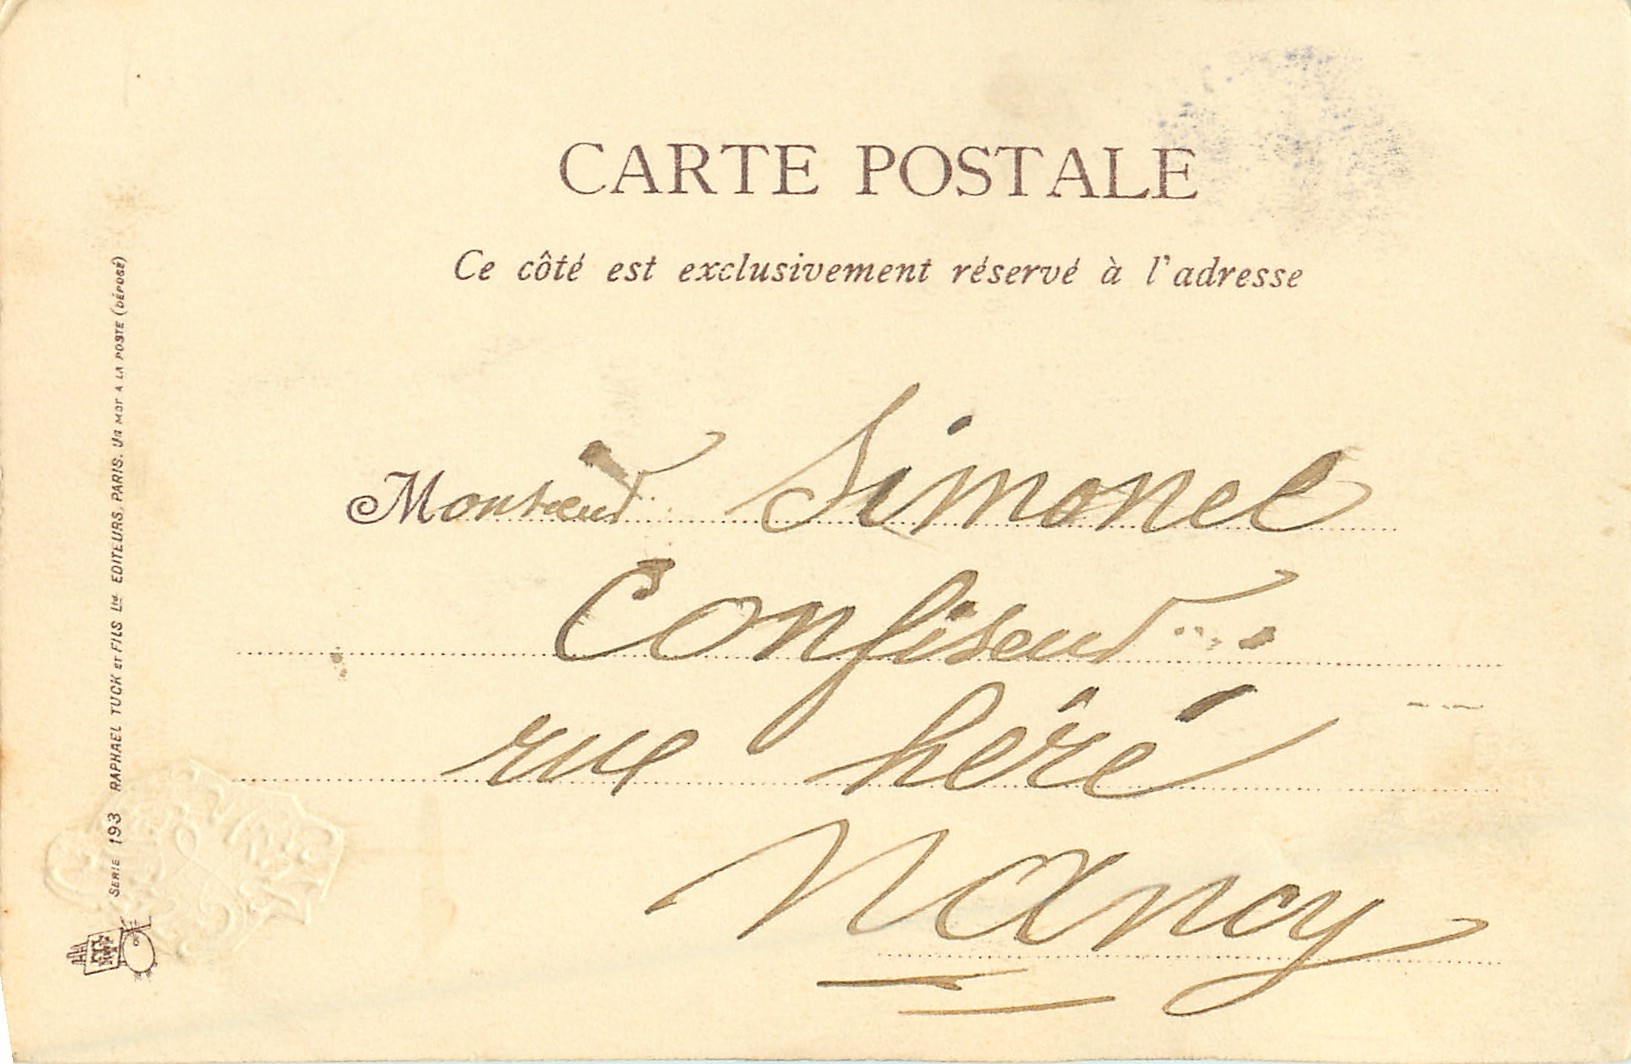 CARTE POSTALE
Ce côté est exclusivement réservé à l'adresse
Monsieur Simonel
Confiseur
rue héré
Nancy
SERIE 193 RAPHAEL TUCK ET FILS Ltd EDITEURS, PARIS. Un Mot A LA POSTE (DÉPOSÉ)